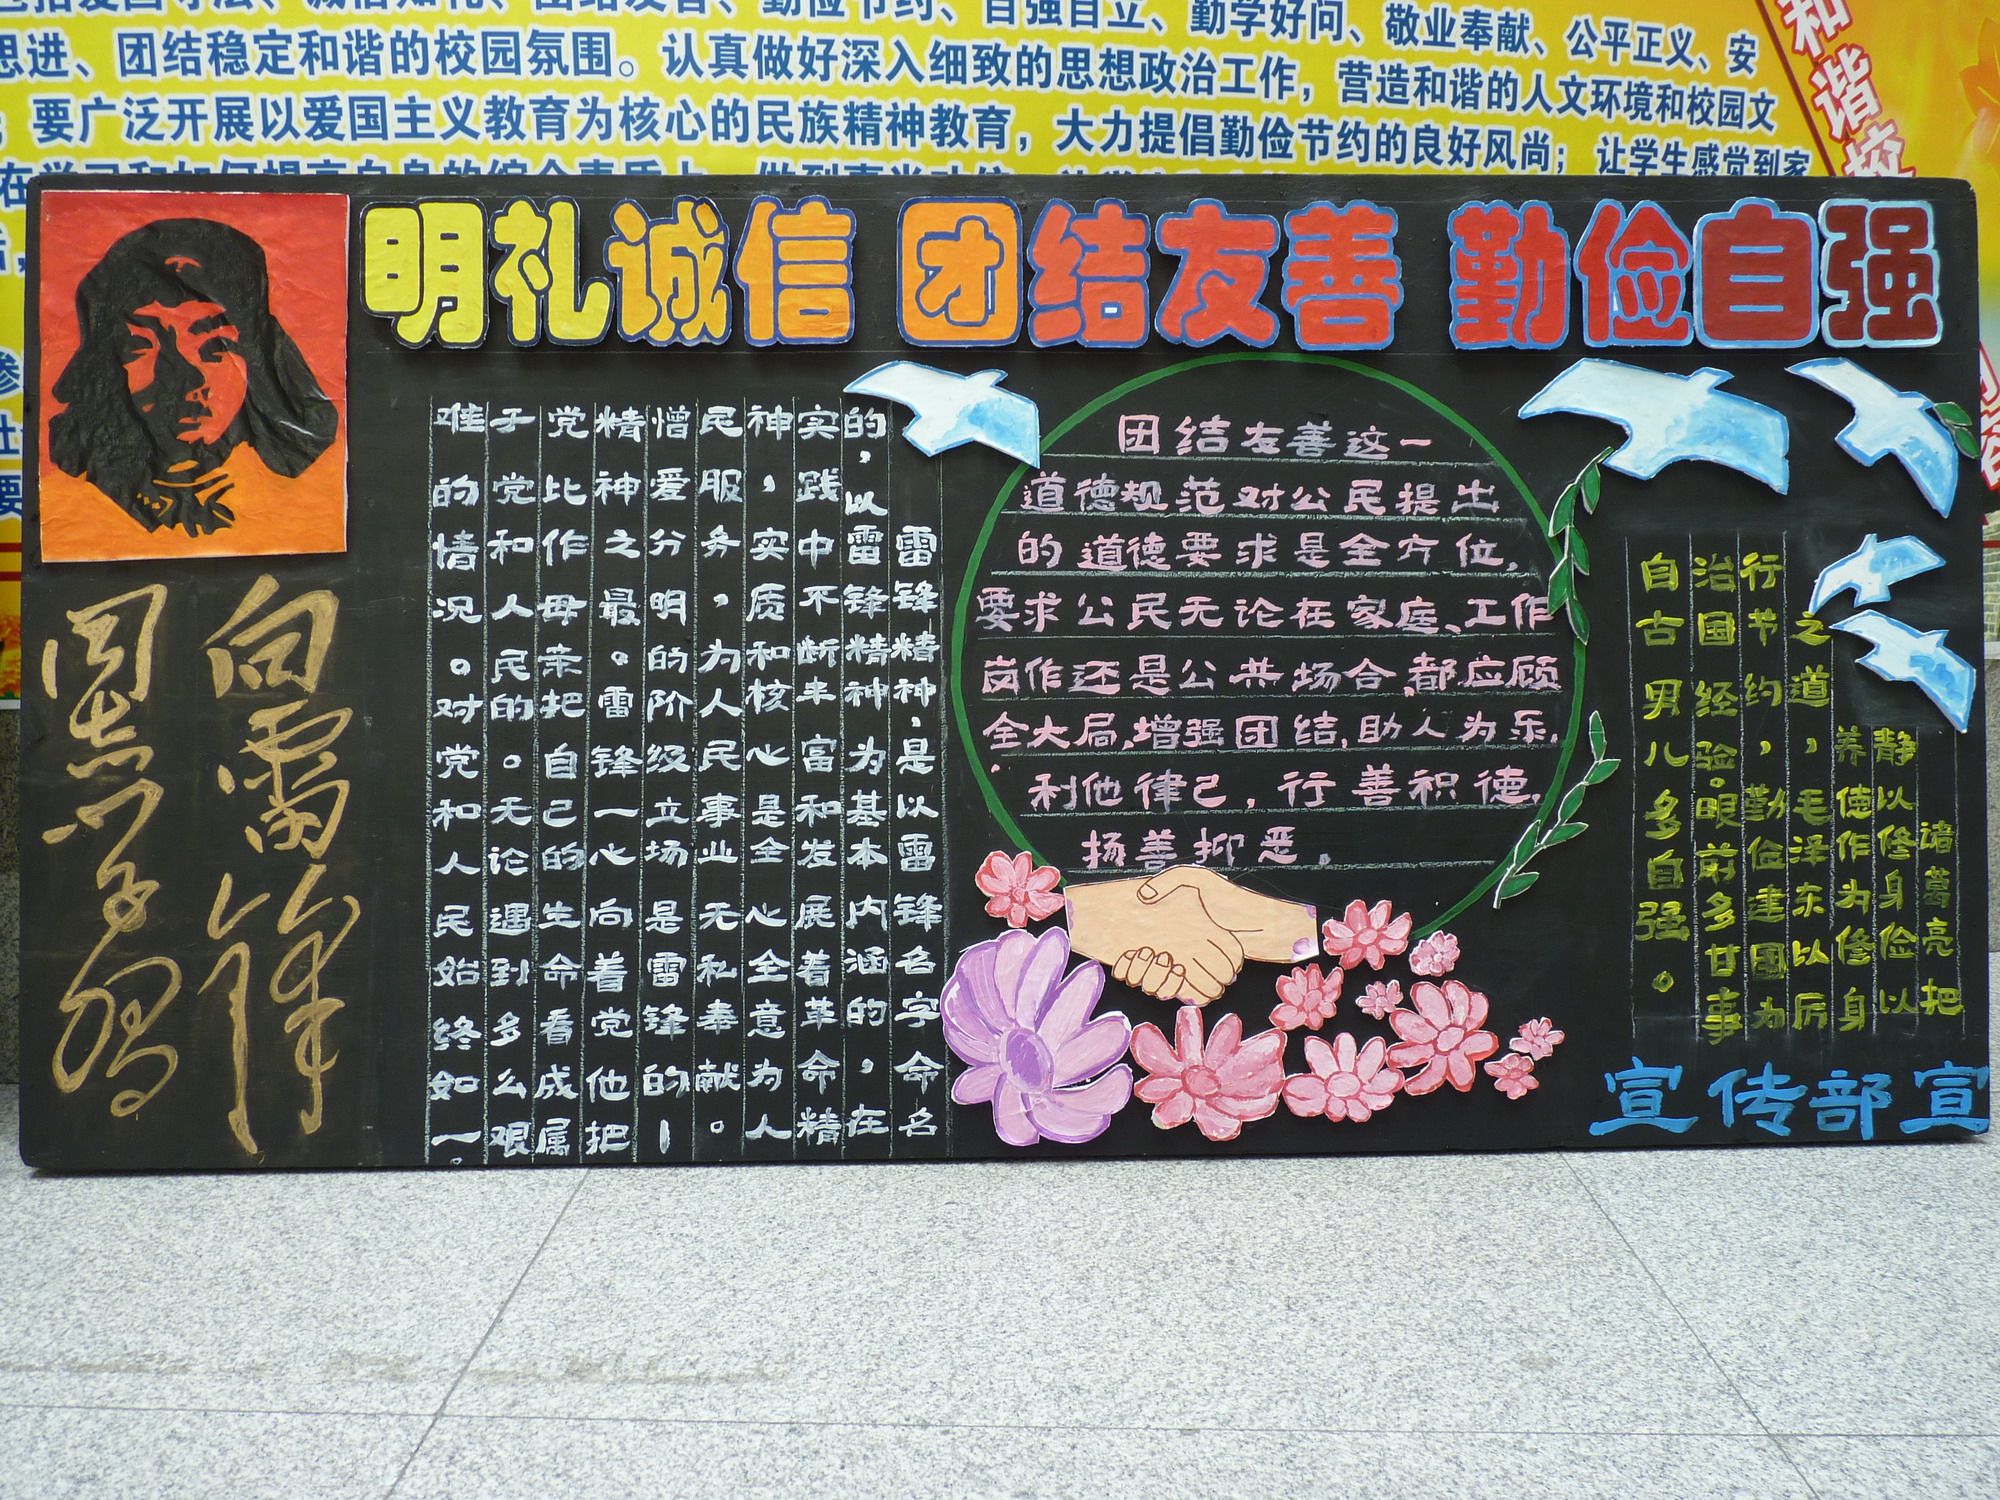 包括爱国守法、诚信知礼、团结友善、勤俭节约、自强自立、勤学好问、敬业奉献、公平正义、安
思进、团结稳定和谐的校园氛围。认真做好深入细致的思想政治工作，营造和谐的人文环境和校园文
；要广泛开展以爱国主义教育为核心的民族精神教育，大力提倡勤俭节约的良好风尚；让学生感觉到家
和谐校
明礼诚信 团结友善 勤俭自强
向雷锋
同志学习
雷锋精神，是以雷锋名字命名
的，以雷锋精神为基本内涵的，在
实践中不断丰富和发展着革命精
神，实质和核心是全心全意为人
民服务，为人民事业无私奉献。
憎爱分明的阶级立场是雷锋的
精神之最。雷锋一心向着党他把
党比作母亲把自己的生命看成属
于党和人民的。无论遇到多么艰
难的情况。对党和人民始终如一。
团结友善这一
道德规范对公民提出
的道德要求是全方位，
要求公民无论在家庭、工作
岗作还是公共场合，都应顾
全大局，增强团结，助人为乐，
利他律己，行善积德，
扬善抑恶。
诸葛亮把
静以修身俭以
养德作为修身
之道，毛泽东以厉
行节约，勤俭建国为
治国经验。眼前多甘事
自古男儿多自强。
宣传部宣